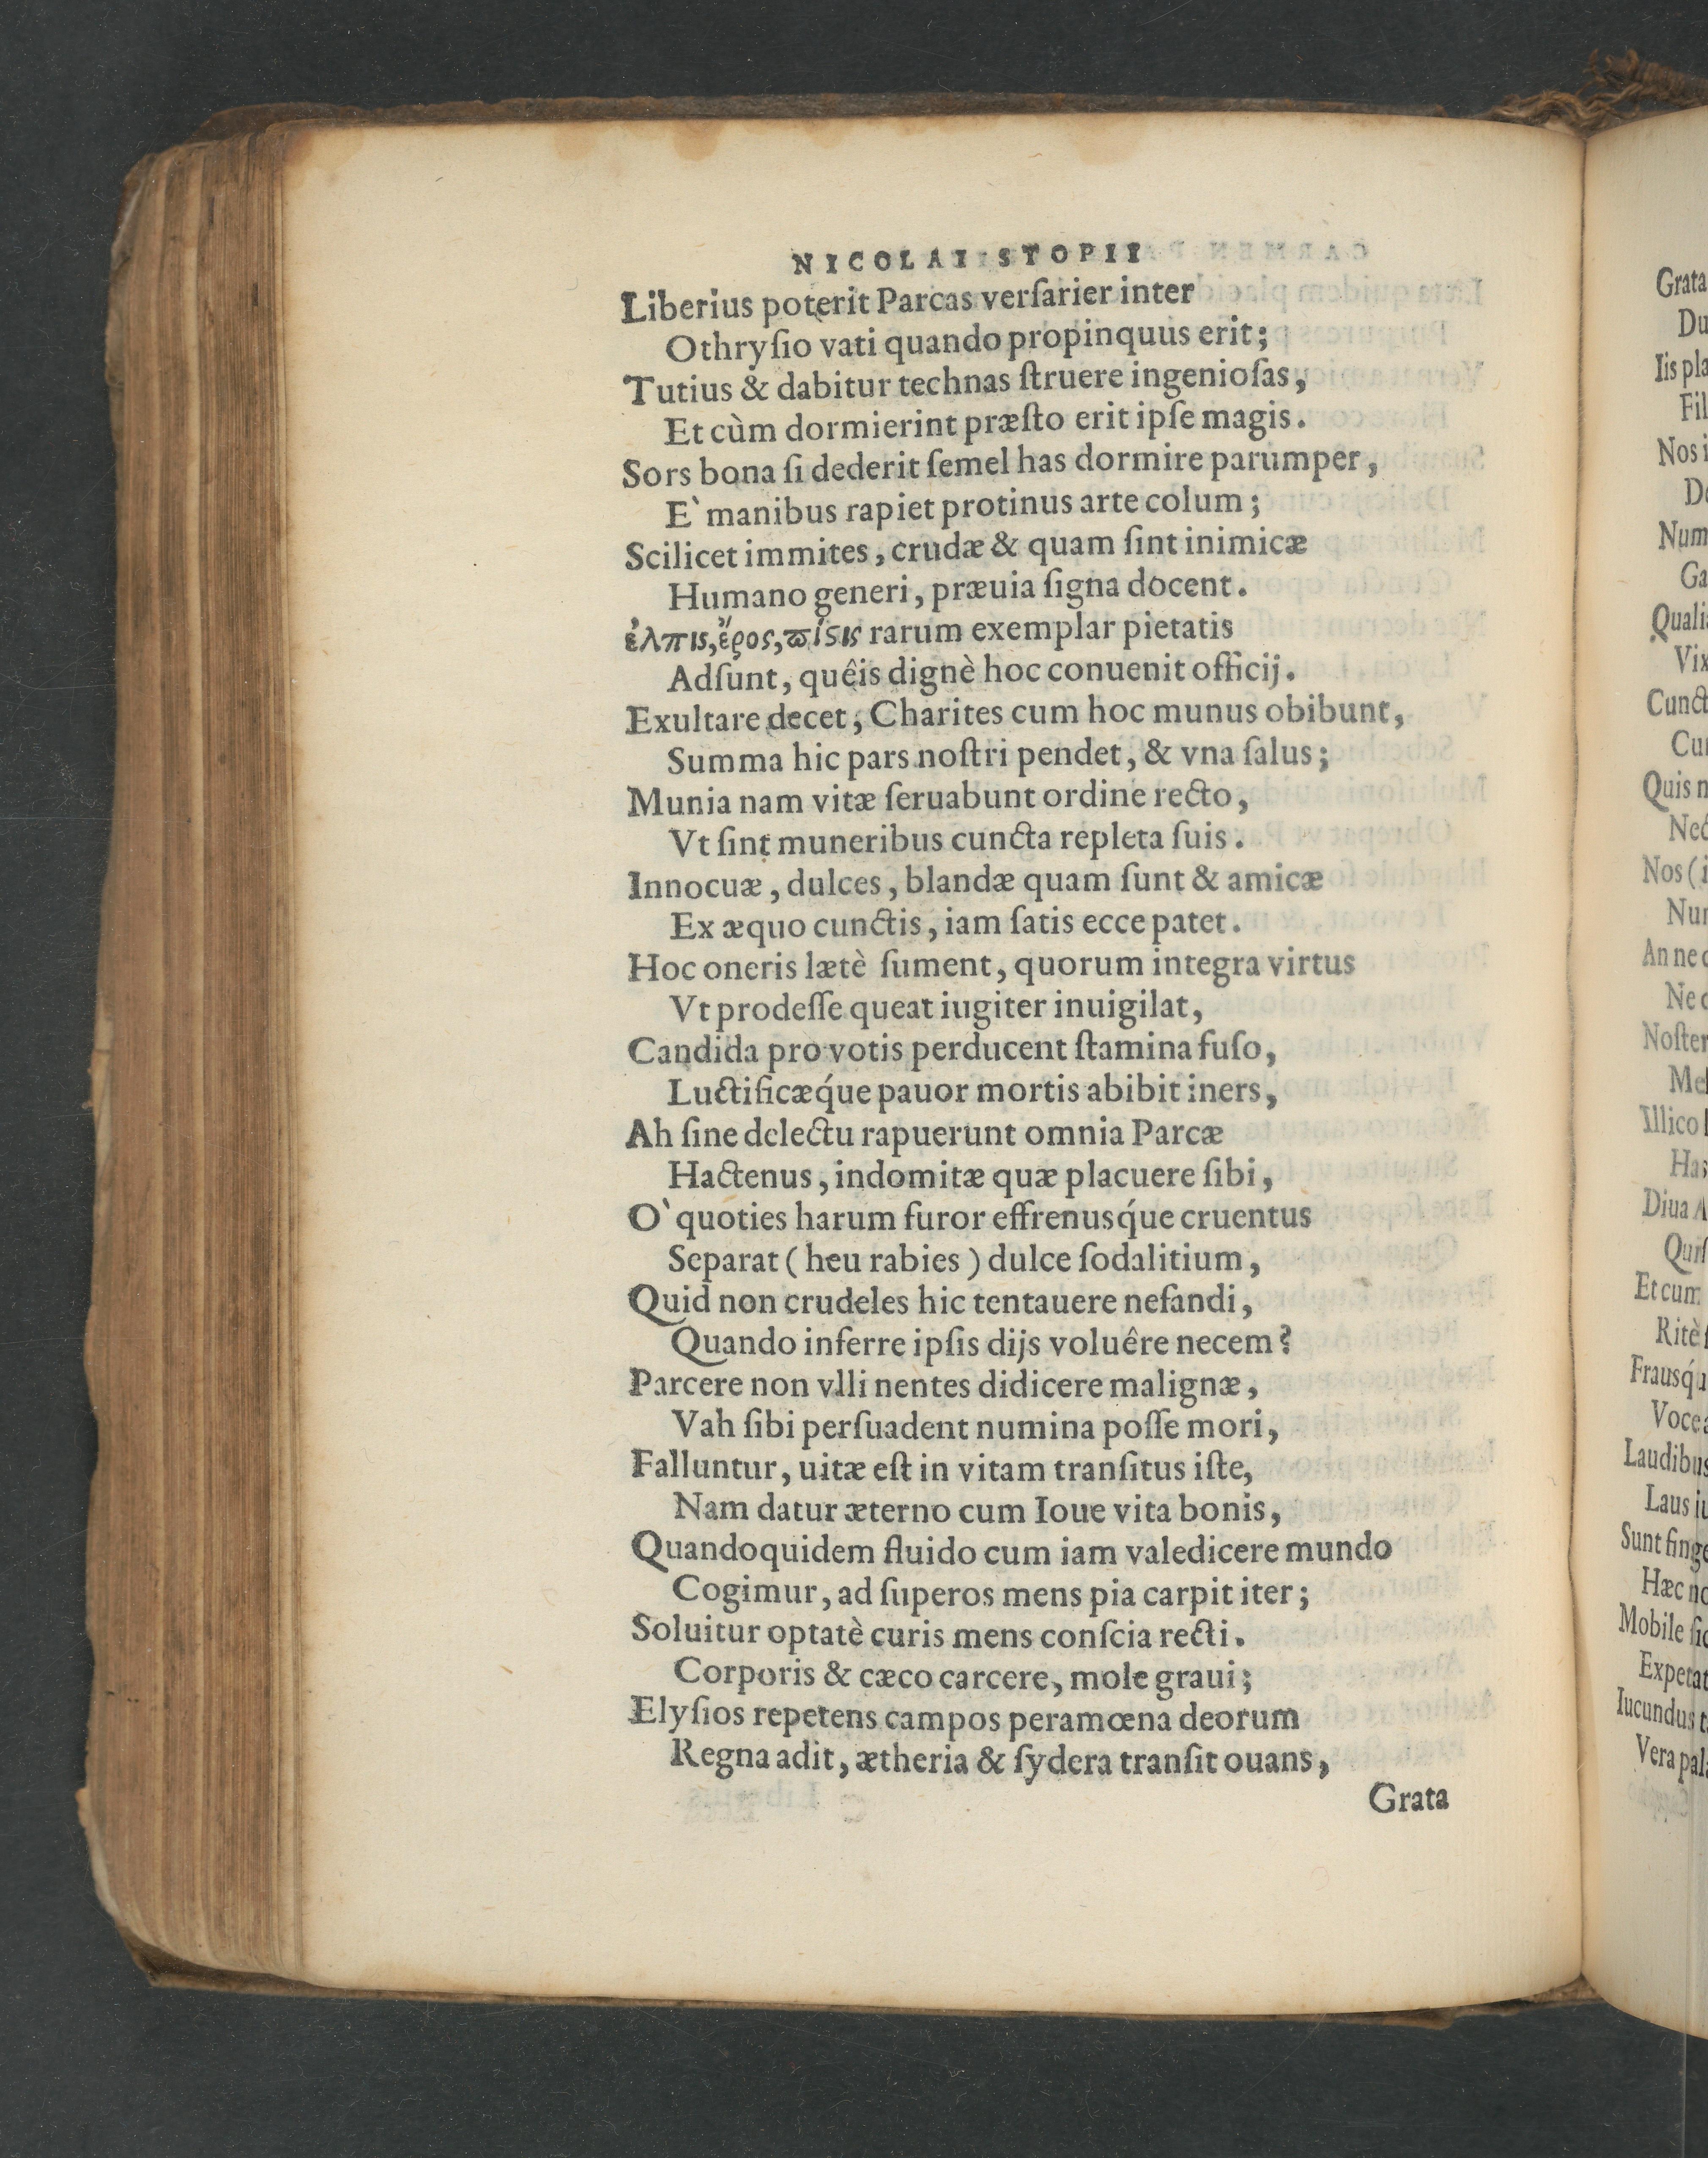 NICOLAI STOPII
Liberius poterit Parcas verſarier inter
Othryſio vati quando propinquus erit;
Tutius & dabitur technas ſtruere ingenioſas,
Et cùm dormierint præſto erit ipſe magis.
Sors bona ſi dederit ſemel has dormire parumper,
E` manibus rapiet protinus arte colum;
Scilicet immites, crudæ & quam ſint inimicæ
Humano generi, præuia ſigna docent.
ἐλπις, ἔρος, ϖίϛις rarum exemplar pietatis
Adſunt, quêis dignè hoc conuenit officij.
Exultare decet, Charites cum hoc munus obibunt,
Summa hic pars noſtri pendet, & vna ſalus;
Munia nam vitæ ſeruabunt ordine recto,
Vt ſint muneribus cuncta repleta ſuis.
Innocuæ, dulces, blandæ quam ſunt & amicæ
Ex æquo cunctis, iam ſatis ecce patet.
Hoc oneris lætè ſument, quorum integra virtus
Vt prodeſſe queat iugiter inuigilat,
Candida pro votis perducent ſtamina fuſo,
Luctificæq́ue pauor mortis abibit iners,
Ah ſine delectu rapuerunt omnia Parcæ
Hactenus, indomitæ quæ placuere ſibi,
O` quoties harum furor effrenusq́ue cruentus
Separat (heu rabies) dulce ſodalitium,
Quid non crudeles hic tentauere nefandi,
Quando inferre ipſis dijs voluêre necem?
Parcere non vlli nentes didicere malignæ,
Vah ſibi perſuadent numina poſſe mori,
Falluntur, uitæ eſt in vitam tranſitus iſte,
Nam datur æterno cum Ioue vita bonis,
Quandoquidem fluido cum iam valedicere mundo
Cogimur, ad ſuperos mens pia carpit iter;
Soluitur optatè curis mens conſcia recti.
Corporis & cæco carcere, mole graui;
Elyſios repetens campos peramœna deorum
Regna adit, ætheria & ſydera tranſit ouans,
Grata
Grata
Iis
Nos
Et cum
Ritè
Laudibus
Laus
Sunt
Hæc
Mobile
Iucundus
Vera